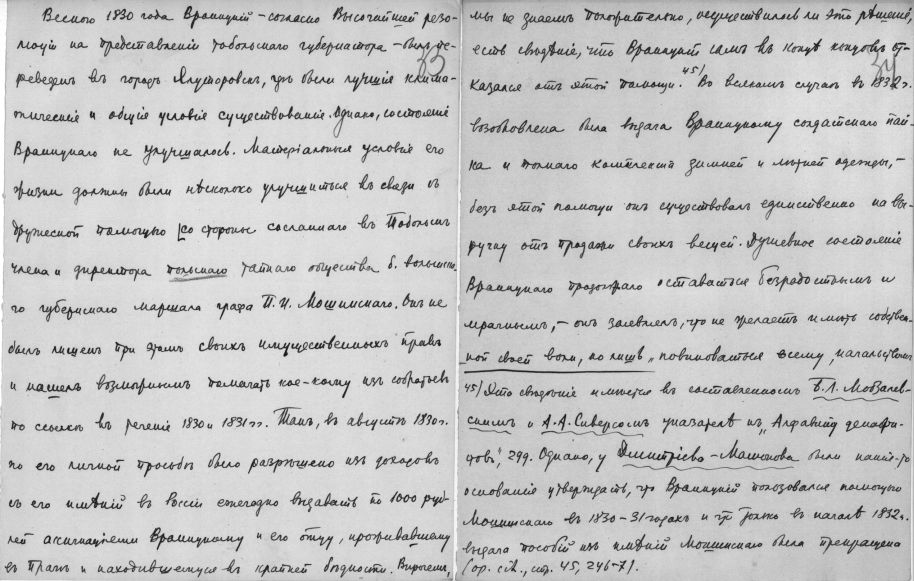 33
Весною 1830 года Враницкiй – согласно Высочайшей резо-
люцiи на представленiи тобольскаго губернатора – былъ пе-
реведенъ въ городъ Ялуторовскъ, гдѣ были лучшiя клима-
тическiя и общiя условiя существованiя. Однако, состоянiе
Враницкаго не улучшалось. Матерiальныя условiя его
жизни должны были нѣсколько улучшиться въ связи съ
дружеской помощью со стороны сосланнаго въ Тобольскъ
члена и директора польскаго тайнаго общества б. волынска-
го губернскаго маршала графа П. И. Мошинскаго. Онъ не
былъ лишенъ при этомъ своихъ имущественныхъ правъ
и нашелъ возможнымъ помогать кое-кому изъ собратьевъ
по ссылкѣ въ теченiе 1830 и 1831 гг. Такъ, въ августѣ 1830 г.
по его личной просьбѣ было разрѣшено изъ доходовъ
съ его имѣнiй въ Россiи ежегодно выдавать по 1000 руб-
лей ассигнацiями Враницкому и его отцу, проживавшему
въ Прагѣ и находившемуся въ крайней бѣдности. Впрочемъ,
34
мы не знаемъ положительно, осуществилось ли это рѣшенiе,
есть свѣдѣнiе, что Враницкiй самъ въ концѣ концовъ от-
казался отъ этой помощи. 45/ Во всякомъ случаѣ въ 1832 г.
возобновлена была выдача Враницкому солдатскаго пай-
ка и полнаго комплекта зимней и лѣтней одежды, –
безъ этой помощи онъ существовалъ единственно на вы-
ручку отъ продажи своихъ вещей. Душевное состоянiе
Враницкаго продолжало оставаться безрадостнымъ и
мрачнымъ, – онъ заявлялъ, что не желаетъ имѣть собствен-
ной своей воли, но лишь „повиноваться всему, начальствомъ
45/ Это свѣдѣнiе имѣется въ составленномъ Б. Л. Модзалев-
скимъ и А. А. Сиверсомъ указателѣ къ „Алфавиту декабри-
стовъ", 299. Однако, у Дмитрiева-Мамонова были какiя-то
основанiя утверждать, что Враницкiй пользовался помощью
Мошинскаго въ 1830–31 годахъ и что только въ началѣ 1832 г.
выдача пособiй изъ имѣнiй Мошинскаго была прекращена
(op. cit., стр. 45, 246-7).